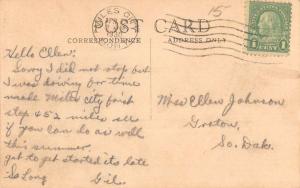 15
MILES CITY
POST CARD
CORRESPONDENCE
ADDRESS ONLY
1 CENT 1
Hello Ellen:
Sorry I did not stop but
I was driving for time
made Miles City first
stop 452 miles all
if you can do as well
this summer.
got to get started its late
So Long Gil.
Miss Ellen Johnson
Groton,
So. Dak.